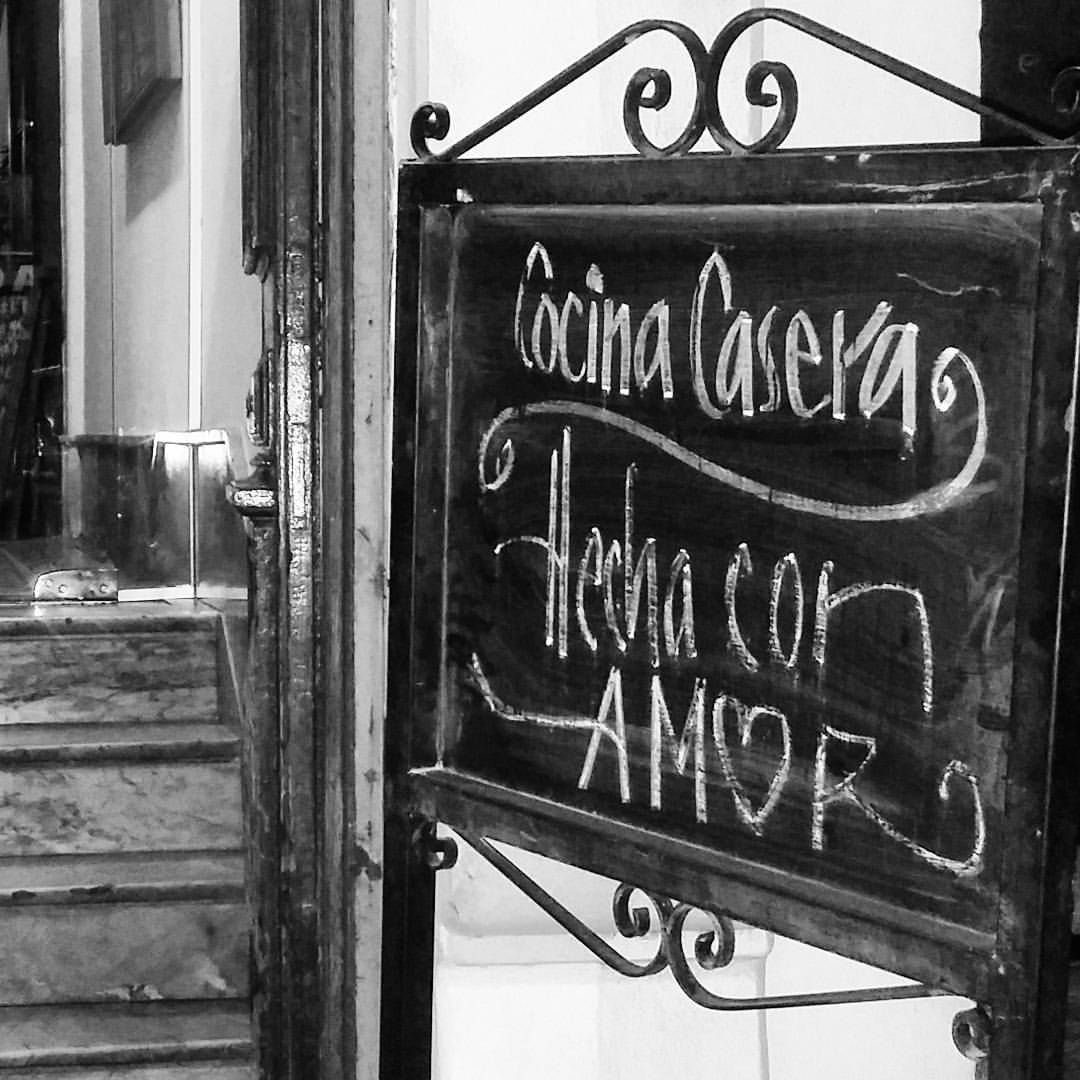 Cocina Casera
Hecha con
AMOR